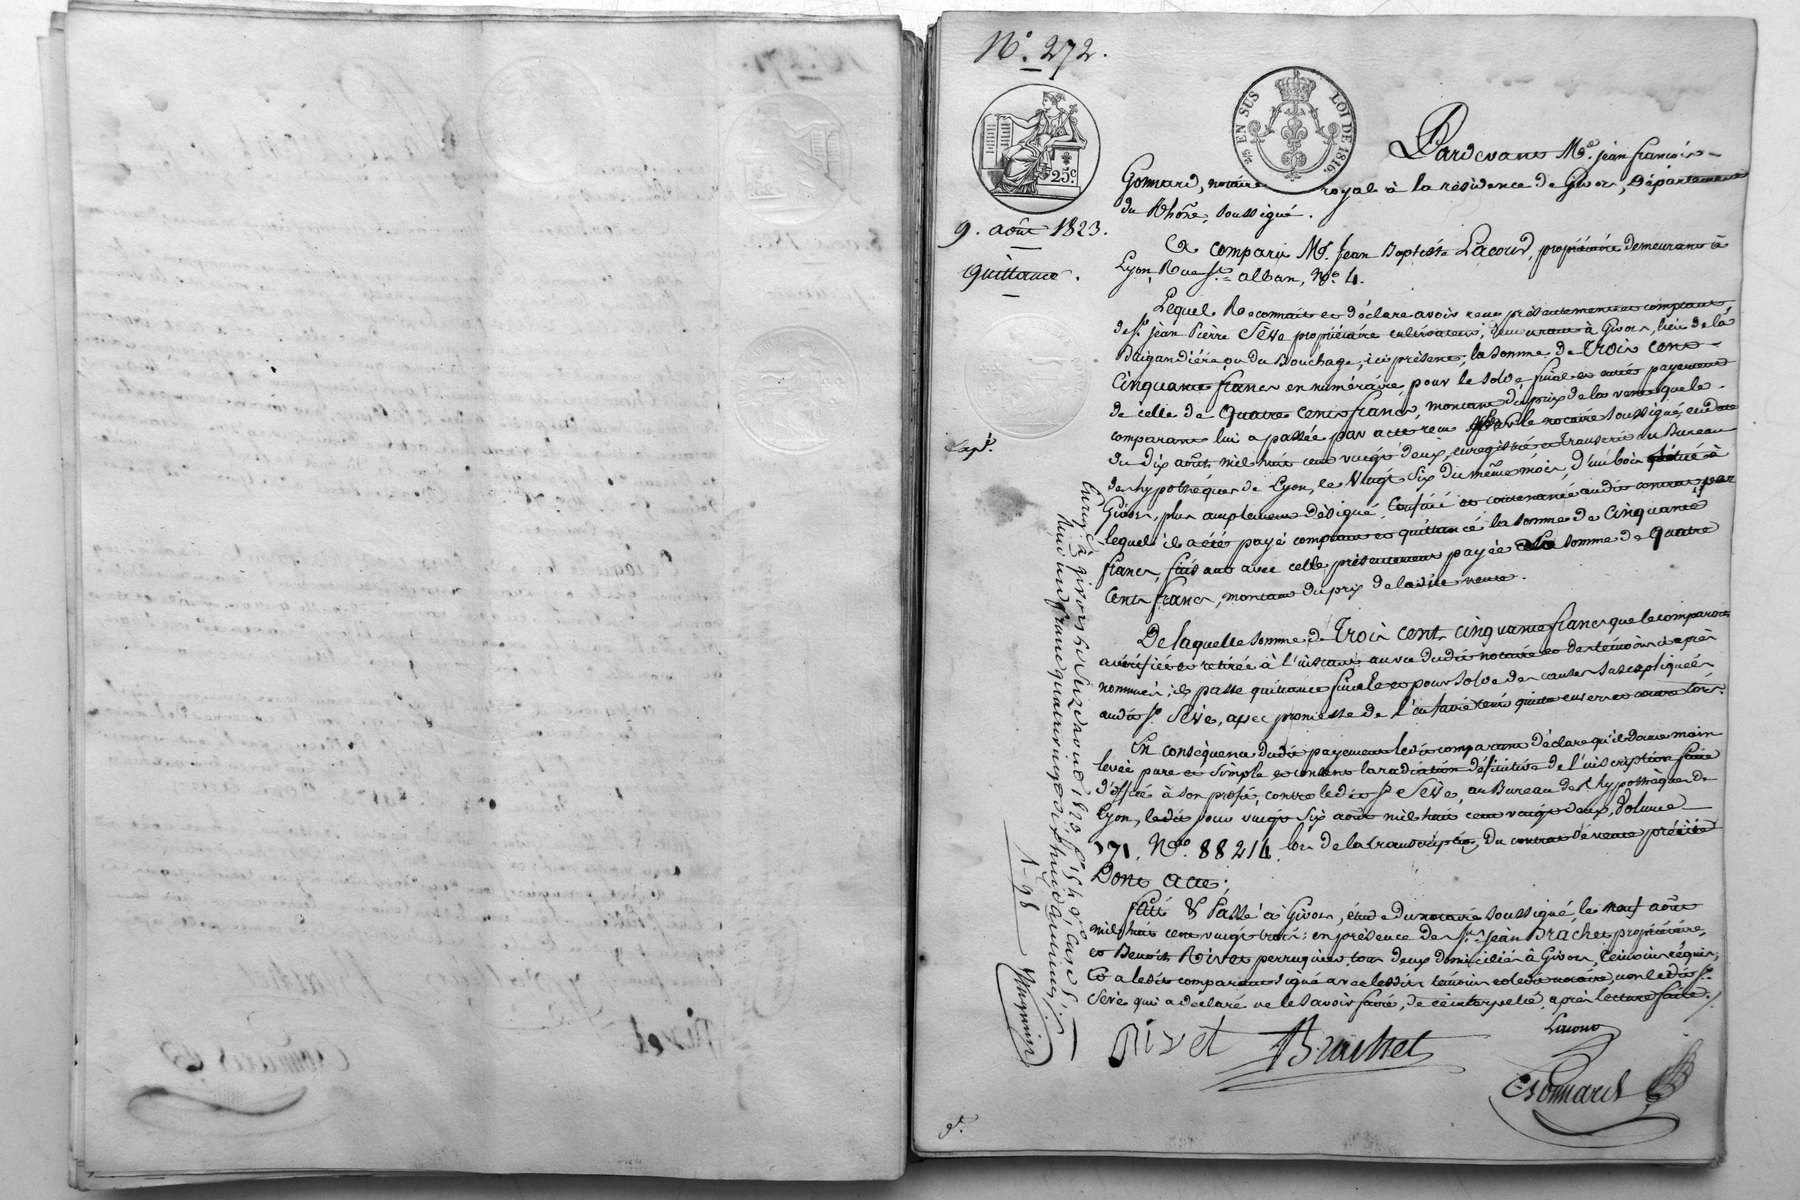 N.° 272.
25 EN SUS
LOI DE 1816.
25c.
9. août 1823.
Quittance.
Exp.é
Pardevant M.e jean françois
Gonnard, notaire royal à la résidence de Givors, Département
du Rhône, soussigné.
Est comparu M.r Jean Baptiste Lacour, propriétaire demeurant à
Lyon Rue S.t alban, N.o 4.
Lequel Reconnait et déclare avoir reçu présentement et comptant
de S.r jean Pierre Sève propriétaire cultivateur, demeurant à Givors, lieu de la
ou du Bouchage, ici présent, la somme de Trois cent
Cinquante francs en numéraire, pour le solde final et entier payement
de celle de quatre cents francs, montant du prix de la vente que le
comparant lui a passée par acte reçu par le notaire soussigné, en date
du dix août mil huit cent vingt deux, enregistré et transcrit au Bureau
des hypothèques de Lyon, le Vingt Six du même mois, d'un bois situé à
Givors, plus amplement désigné, confiné et contenancé audit contrat, par
lequel il a été payé comptant et quittancé la somme de Cinquante
francs, faisant avec celle présentement payée la somme de quatre
Cents francs, montant du prix de ladite vente.
De laquelle somme de Trois cent cinquante francs que le comparant
a vérifiée et retirée à l'instant au vu dudit notaire et des témoins ci après
nommés, il passe quittance finale et pour solde des causes susexpliquées
audit S.r Sève, avec promesse de l'en faire tenir quitte envers et contre tous.
En conséquence dudit payement ledit comparant déclare qu'il donne main
levée pure et simple et consent la radiation définitive de l'inscription faite
d'office à son profit, contre ledit S.r Sève, au Bureau des hypothèques de
Lyon, ledit jour vingt six août mil huit cent vingt deux, Volume
171, N.o 88214 lors de la transcription du contrat de vente précité
Dont acte;
fait & Passé à Givors, étude du notaire soussigné, le neuf août
mil huit cent vingt trois: en présence de S.rs jean Brachet propriétaire,
et Benoit Rivet perruquier, tous deux domiciliés à Givors, témoins requis,
Et a ledit comparant signé avec lesdits témoins et ledit notaire, non ledit S.r
Sève qui a déclaré ne le savoir faire, de ce interpellé, après lecture faite.
Lacour
Rivet
Brachet
Gonnard
Enreg.é à givors le onze août 1823 f.o 154
Reçu un franc quatre vingt dix huit centimes
1-98